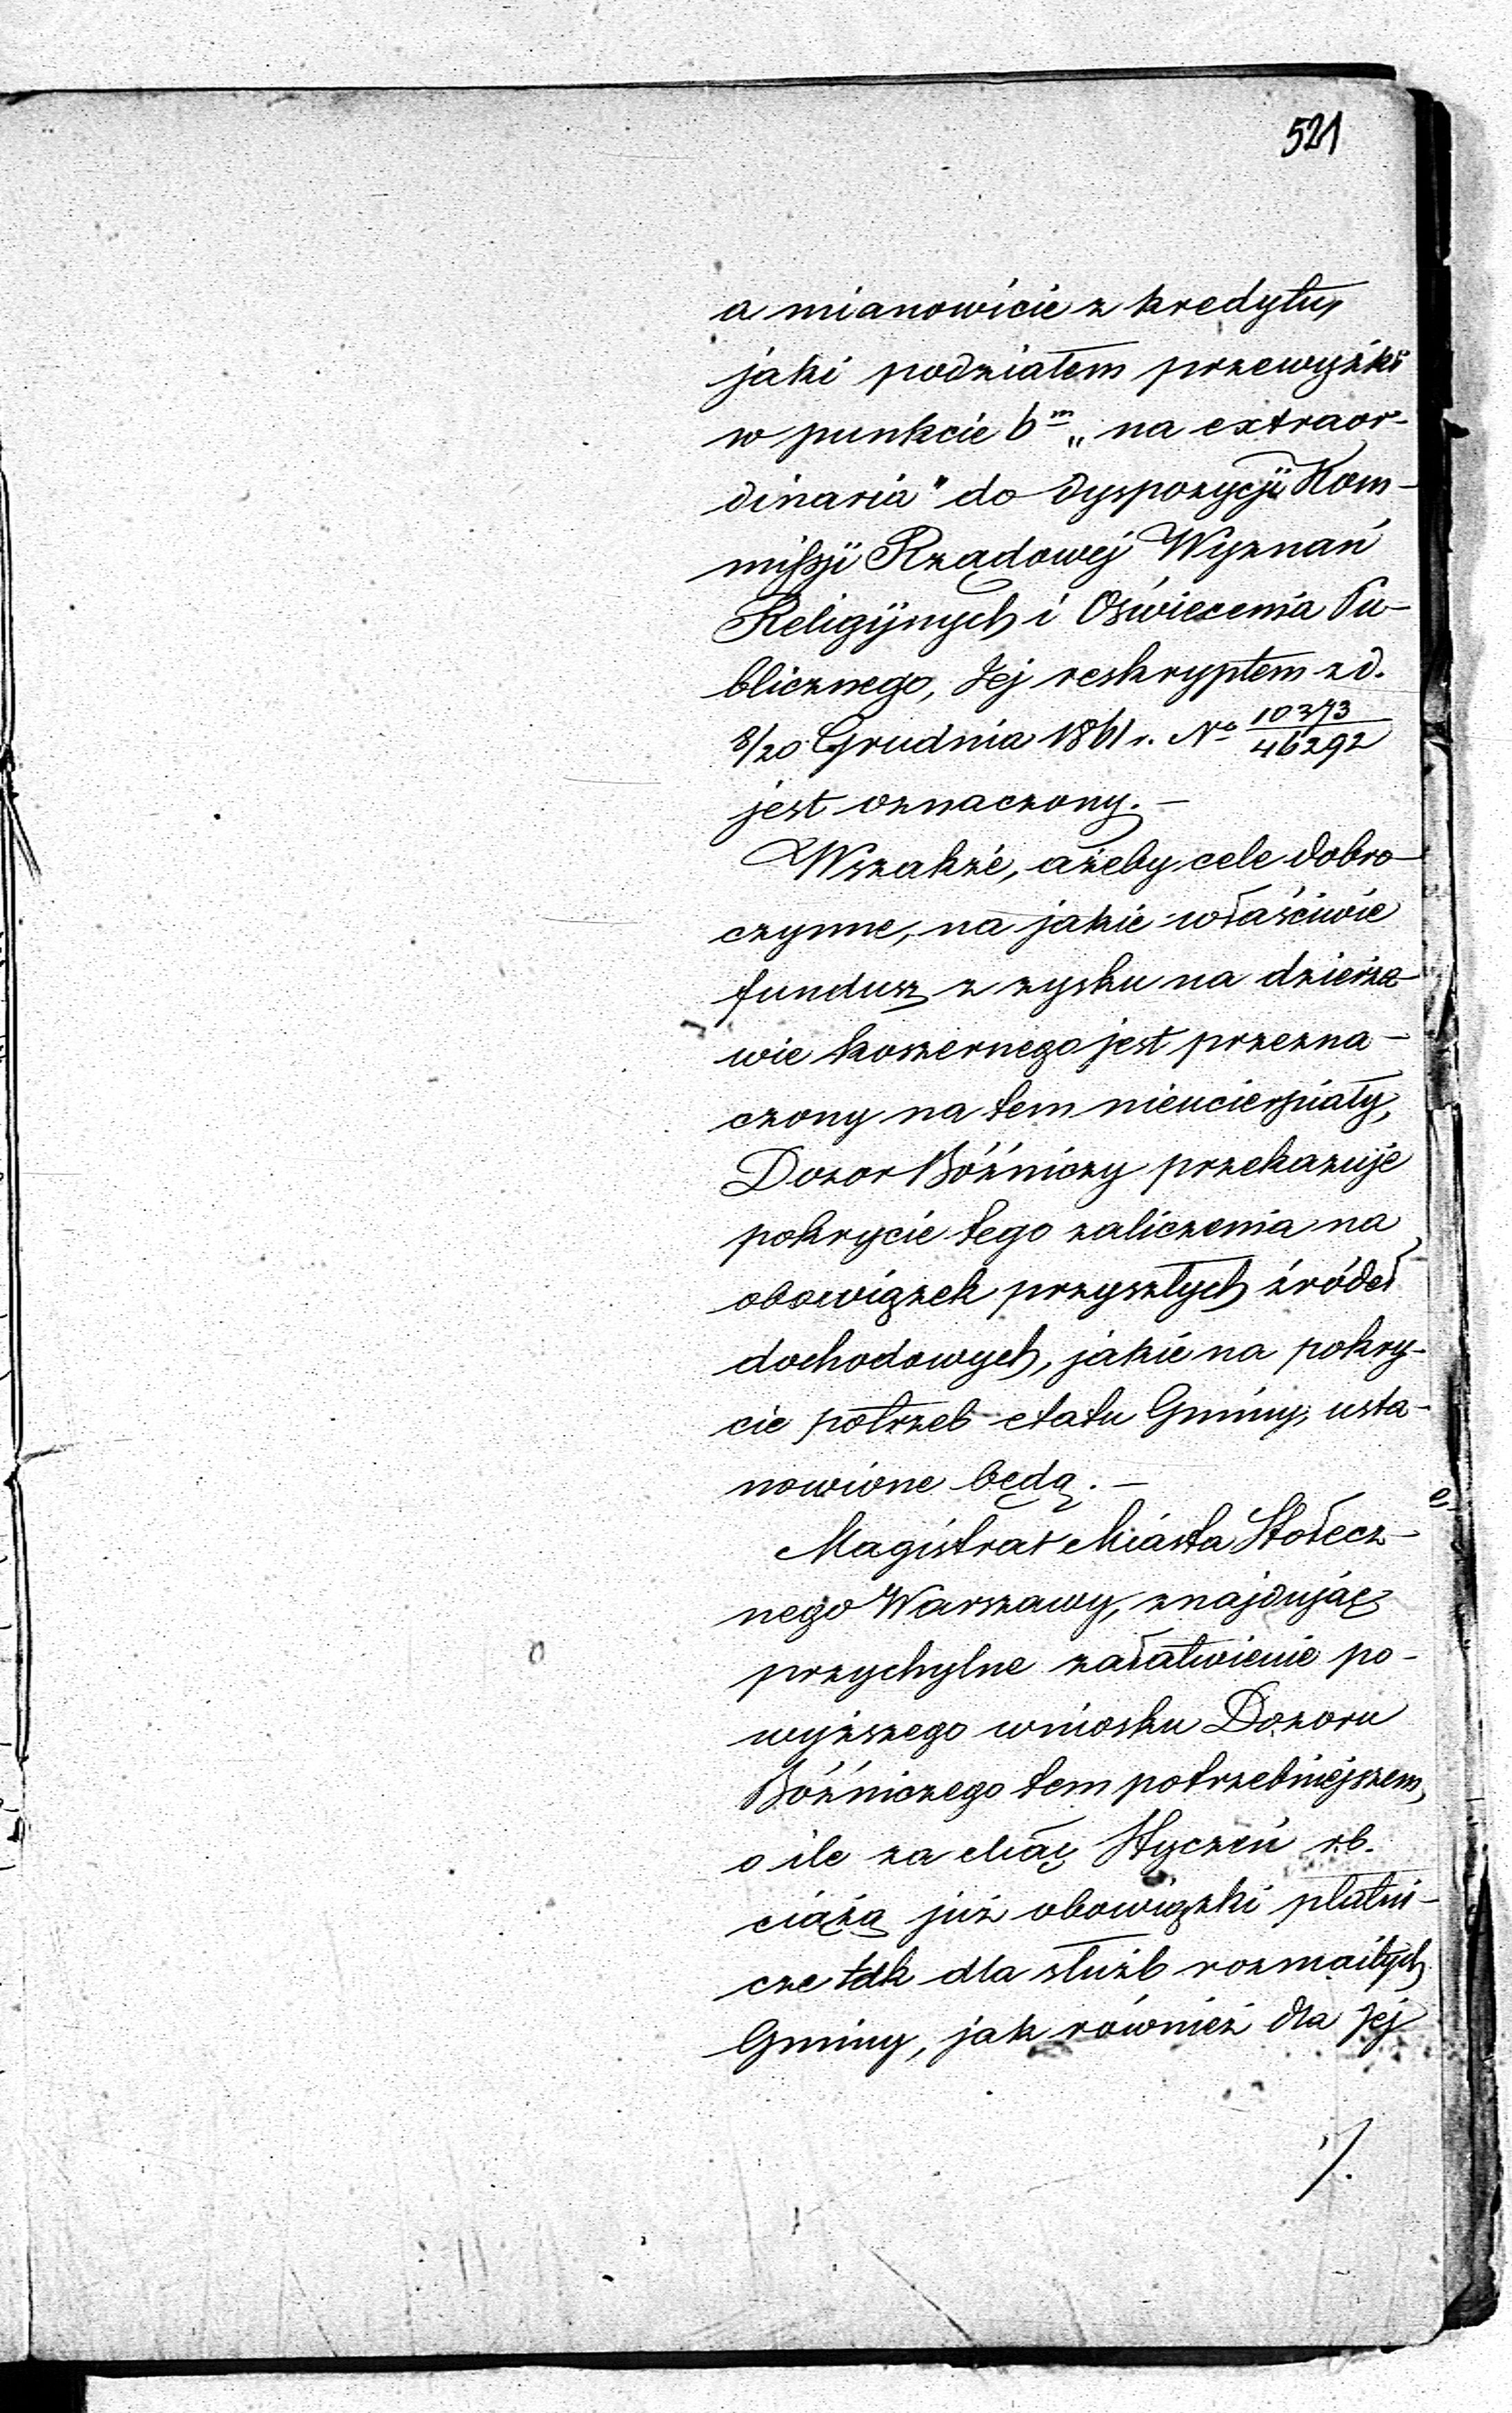 521
a mianowicie z kredytu,
jaki podziałem przewyżki
w punkcie 6m „na extraor-
dinaria" do dyspozycji Kom-
missji Rządowej Wyznań
Religijnych i Oświecenia Pu-
blicznego, Jej reskryptem z d.
8/20 Grudnia 1861 r. No 10373/46292
jest oznaczony. –
Wszakże, ażeby cele dobro-
czynne, na jakie właściwie
fundusz z zysku na dzierża-
wie koszernego jest przezna-
czony na tem nieucierpiały,
Dozor Bóżniczy przekazuje
pokrycie tego zaliczenia na
obowiązek przyszłych źródeł
dochodowych, jakie na pokry-
cie potrzeb etatu Gminy, usta-
nowione będą. –
Magistrat Miasta Stołecz-
nego Warszawy, znajdując
przychylne załatwienie po-
wyższego wniosku Dozoru
Bóżniczego tem potrzebniejszem,
o ile za Mąc Styczeń r.b.
ciążą już obowiązki płatni-
cze tak dla służb rozmaitych
Gminy, jak również dla Jej
./.